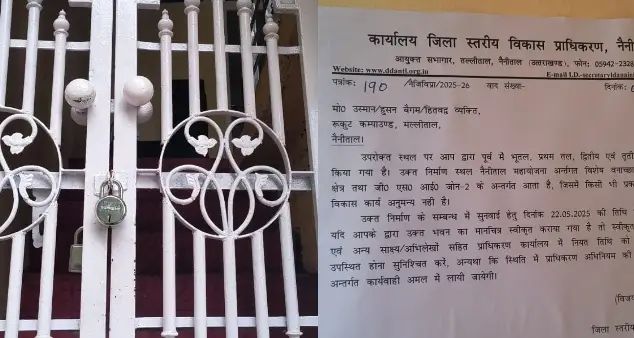 कार्यालय जिला स्तरीय विकास प्राधिकरण, नैनी
आयुक्त सभागार, तल्लीताल, नैनीताल (उत्तराखण्ड), फोन: 05942-2328
Website: www.ddantl.org.in E-mail I.D.-secretaryldanain
पत्रांक: 190 /नैजिविप्रा/2025-26 वाद संख्या- दिनांक:
मो0 उस्मान/हुसन बेगम/हितबद्व व्यक्ति,
रूकुट कम्पाउण्ड, मल्लीताल,
नैनीताल।
उपरोक्त स्थल पर आप द्वारा पूर्व में भूतल, प्रथम तल, द्वितीय एवं तृती
किया गया है। उक्त निर्माण स्थली नैनीताल महायोजना अर्न्तगत विशेष वनाच्छा
क्षेत्र तथा जी0 एस0 आई0 जोन-2 के अन्तर्गत आता है, जिसमें किसी भी प्रक
विकास कार्य अनुमन्य नही है।
उक्त निर्माण के सम्बन्ध में सुनवाई हेतु दिनांक 22.05.2025 की तिथि
यदि आपके द्वारा उक्त भवन का मानचित्र स्वीकृत कराया गया है तो स्वीकृत
एवं अन्य साक्ष्य/अभिलेखों सहित प्राधिकरण कार्यालय में नियत तिथि को
उपस्थित होना सुनिश्चित करें, अन्यथा कि स्थिति में प्राधिकरण अधिनियम की
अन्तर्गत कार्यवाही अमल में लायी जायेगी।
(विजय
जिला स्तरीय